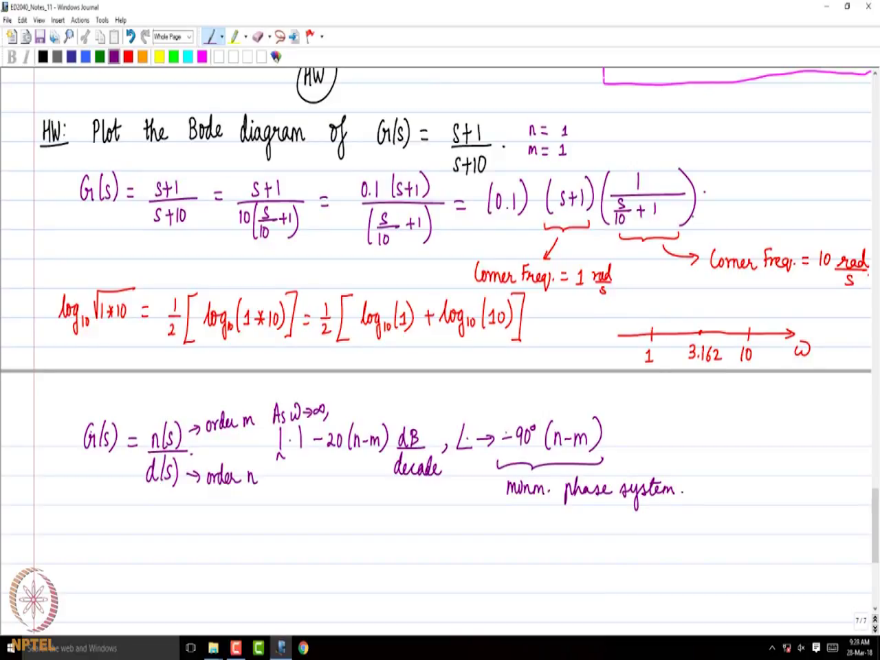 ED2040_Notes_11 - Windows Journal
File Edit View Insert Actions Tools Help
Whole Page
B I
HW
HW: Plot the Bode diagram of G(s) = (s+1)/(s+10) . n = 1
m = 1
G(s) = (s+1)/(s+10) = (s+1)/(10(s/10 +1)) = 0.1 (s+1)/(s/10 +1) = (0.1) (s+1) (1/(s/10 + 1)).
Corner Freq. = 1 rad/s
Corner Freq. = 10 rad/s
log₁₀ √(1*10) = 1/2 [log₁₀(1*10)] = 1/2 [log₁₀(1) + log₁₀(10)]
1 3.162 10 ω
G(s) = n(s)/d(s) → order m → order n
As ω→∞,
|·| -20(n-m) dB/decade , ∠· → -90° (n-m)
minm. phase system.
7/7
NPTEL
the web and Windows
9:28 AM
28-Mar-18